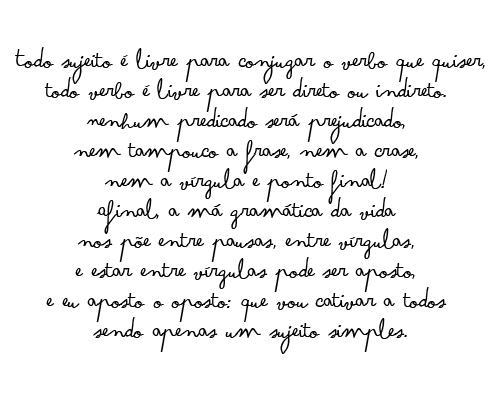 todo sujeito é livre para conjugar o verbo que quiser,
todo verbo é livre para ser direto ou indireto.
nenhum predicado será prejudicado,
nem tampouco a frase, nem a crase,
nem a vírgula e ponto final!
afinal, a má gramática da vida
nos põe entre pausas, entre vírgulas,
e estar entre vírgulas pode ser aposto,
e eu aposto o oposto: que vou cativar a todos
sendo apenas um sujeito simples.